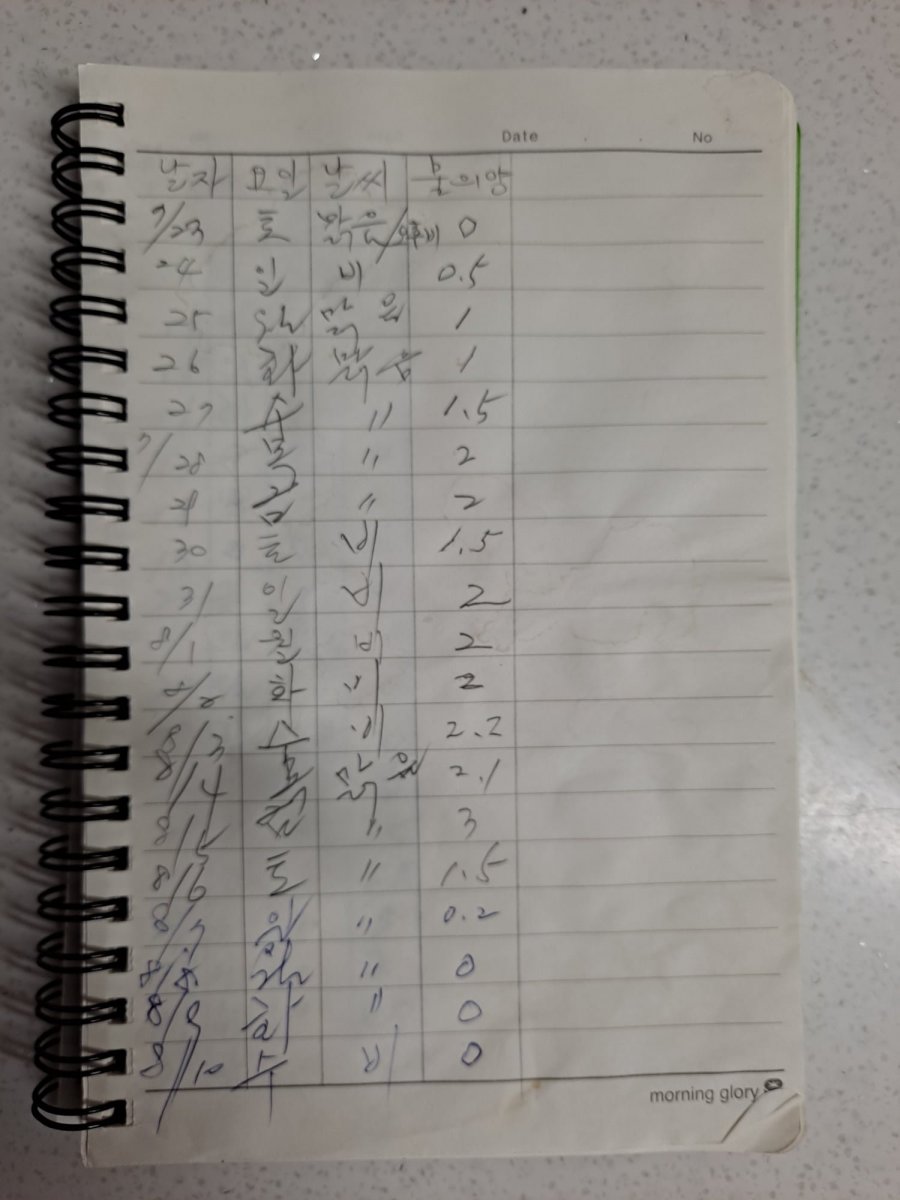 Date . . No
날자 요일 날씨 물의양
7/23 토 맑음/오후비 0
24 일 비 0.5
25 월 맑음 1
26 화 맑음 1
27 수 〃 1.5
7/28 목 〃 2
29 금 〃 2
30 토 비 1.5
31 일 비 2
8/1 월 비 2
8/2 화 〃 2
8/3 수 비 2.2
8/4 목 맑음 2.1
8/5 금 〃 3
8/6 토 〃 1.5
8/7 일 〃 0.2
8/8 월 〃 0
8/9 화 〃 0
8/10 수 비 0
morning glory